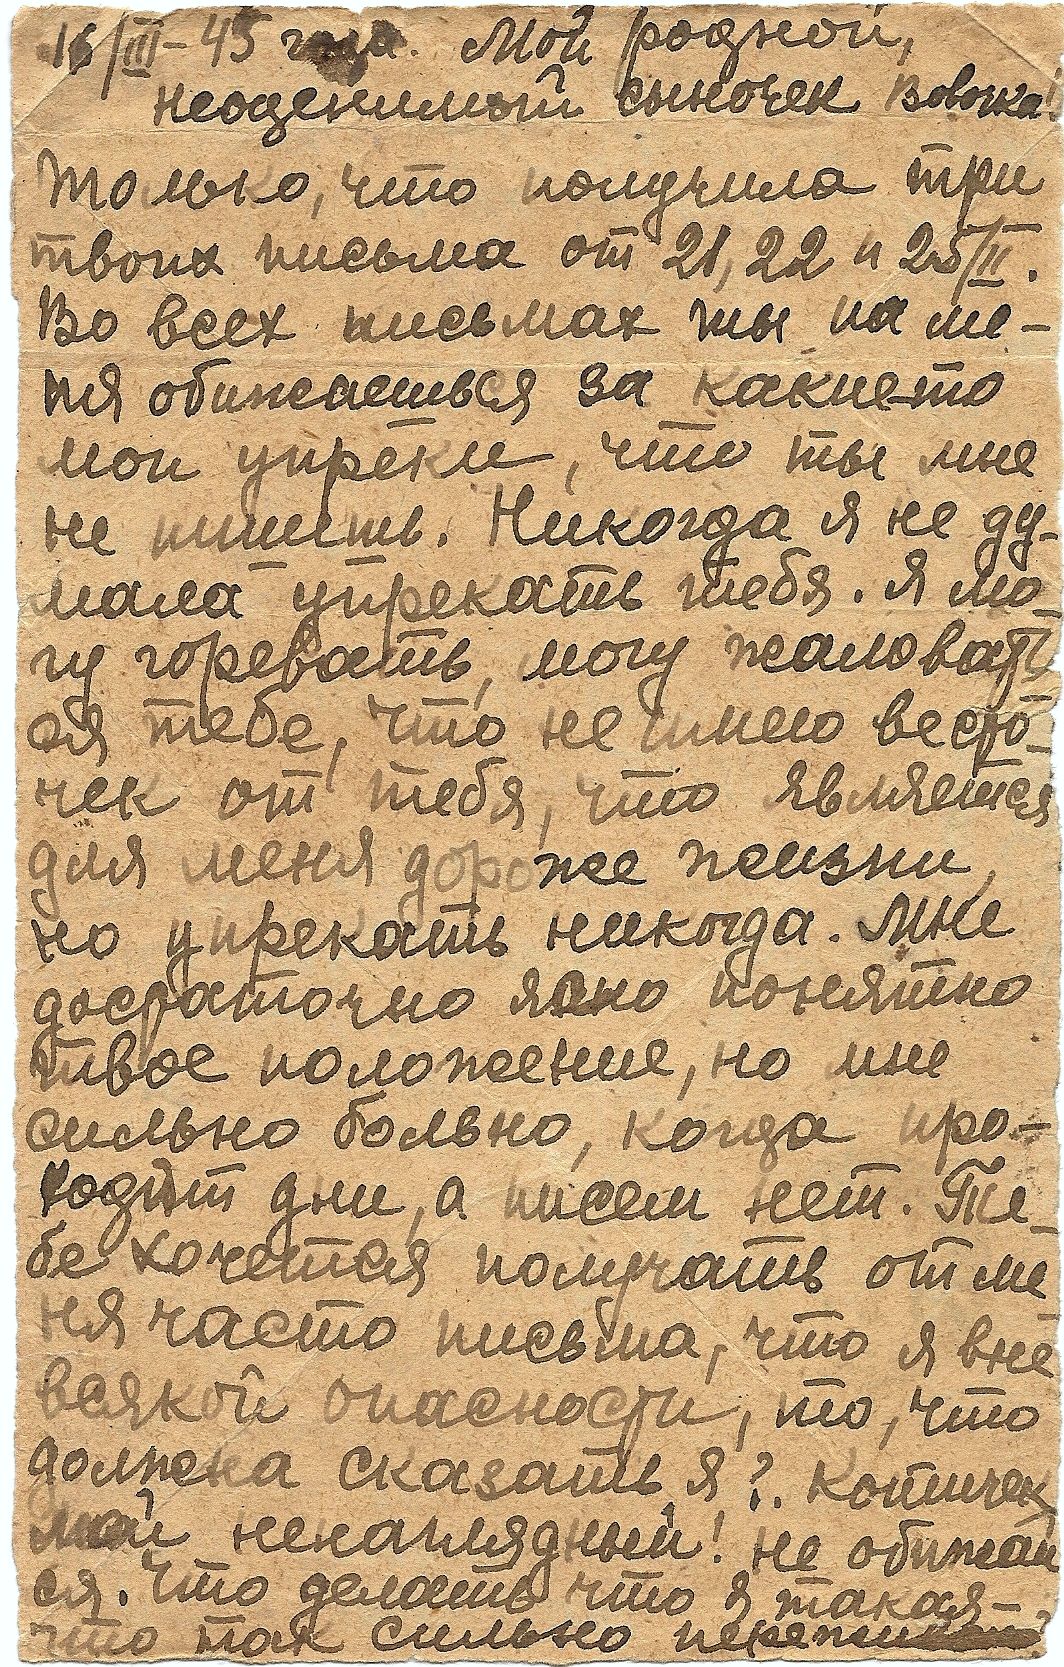 16/III-45 года. Мой родной,
неоценимый сыночек Вовочка!
Только, что получила три
твоих письма от 21, 22 и 25/II.
Во всех письмах ты на ме-
ня обижаешься за какие-то
мои упрёки, что ты мне
не пишешь. Никогда я не ду-
мала упрекать тебя. Я мо-
гу горевать, могу жаловать
ся тебе, что не имею весто-
чек от тебя, что является
для меня дороже жизни,
но упрекать никогда. Мне
достаточно ясно понятно
твое положение, но мне
сильно больно, когда про-
ходят дни, а писем нет. Те-
бе хочется получать от ме
ня часто письма, что я вне
всякой опасности, то, что
должна сказать я?. Котичек
мой ненаглядный! не обижай
ся. Что делать что я такая-
что так сильно